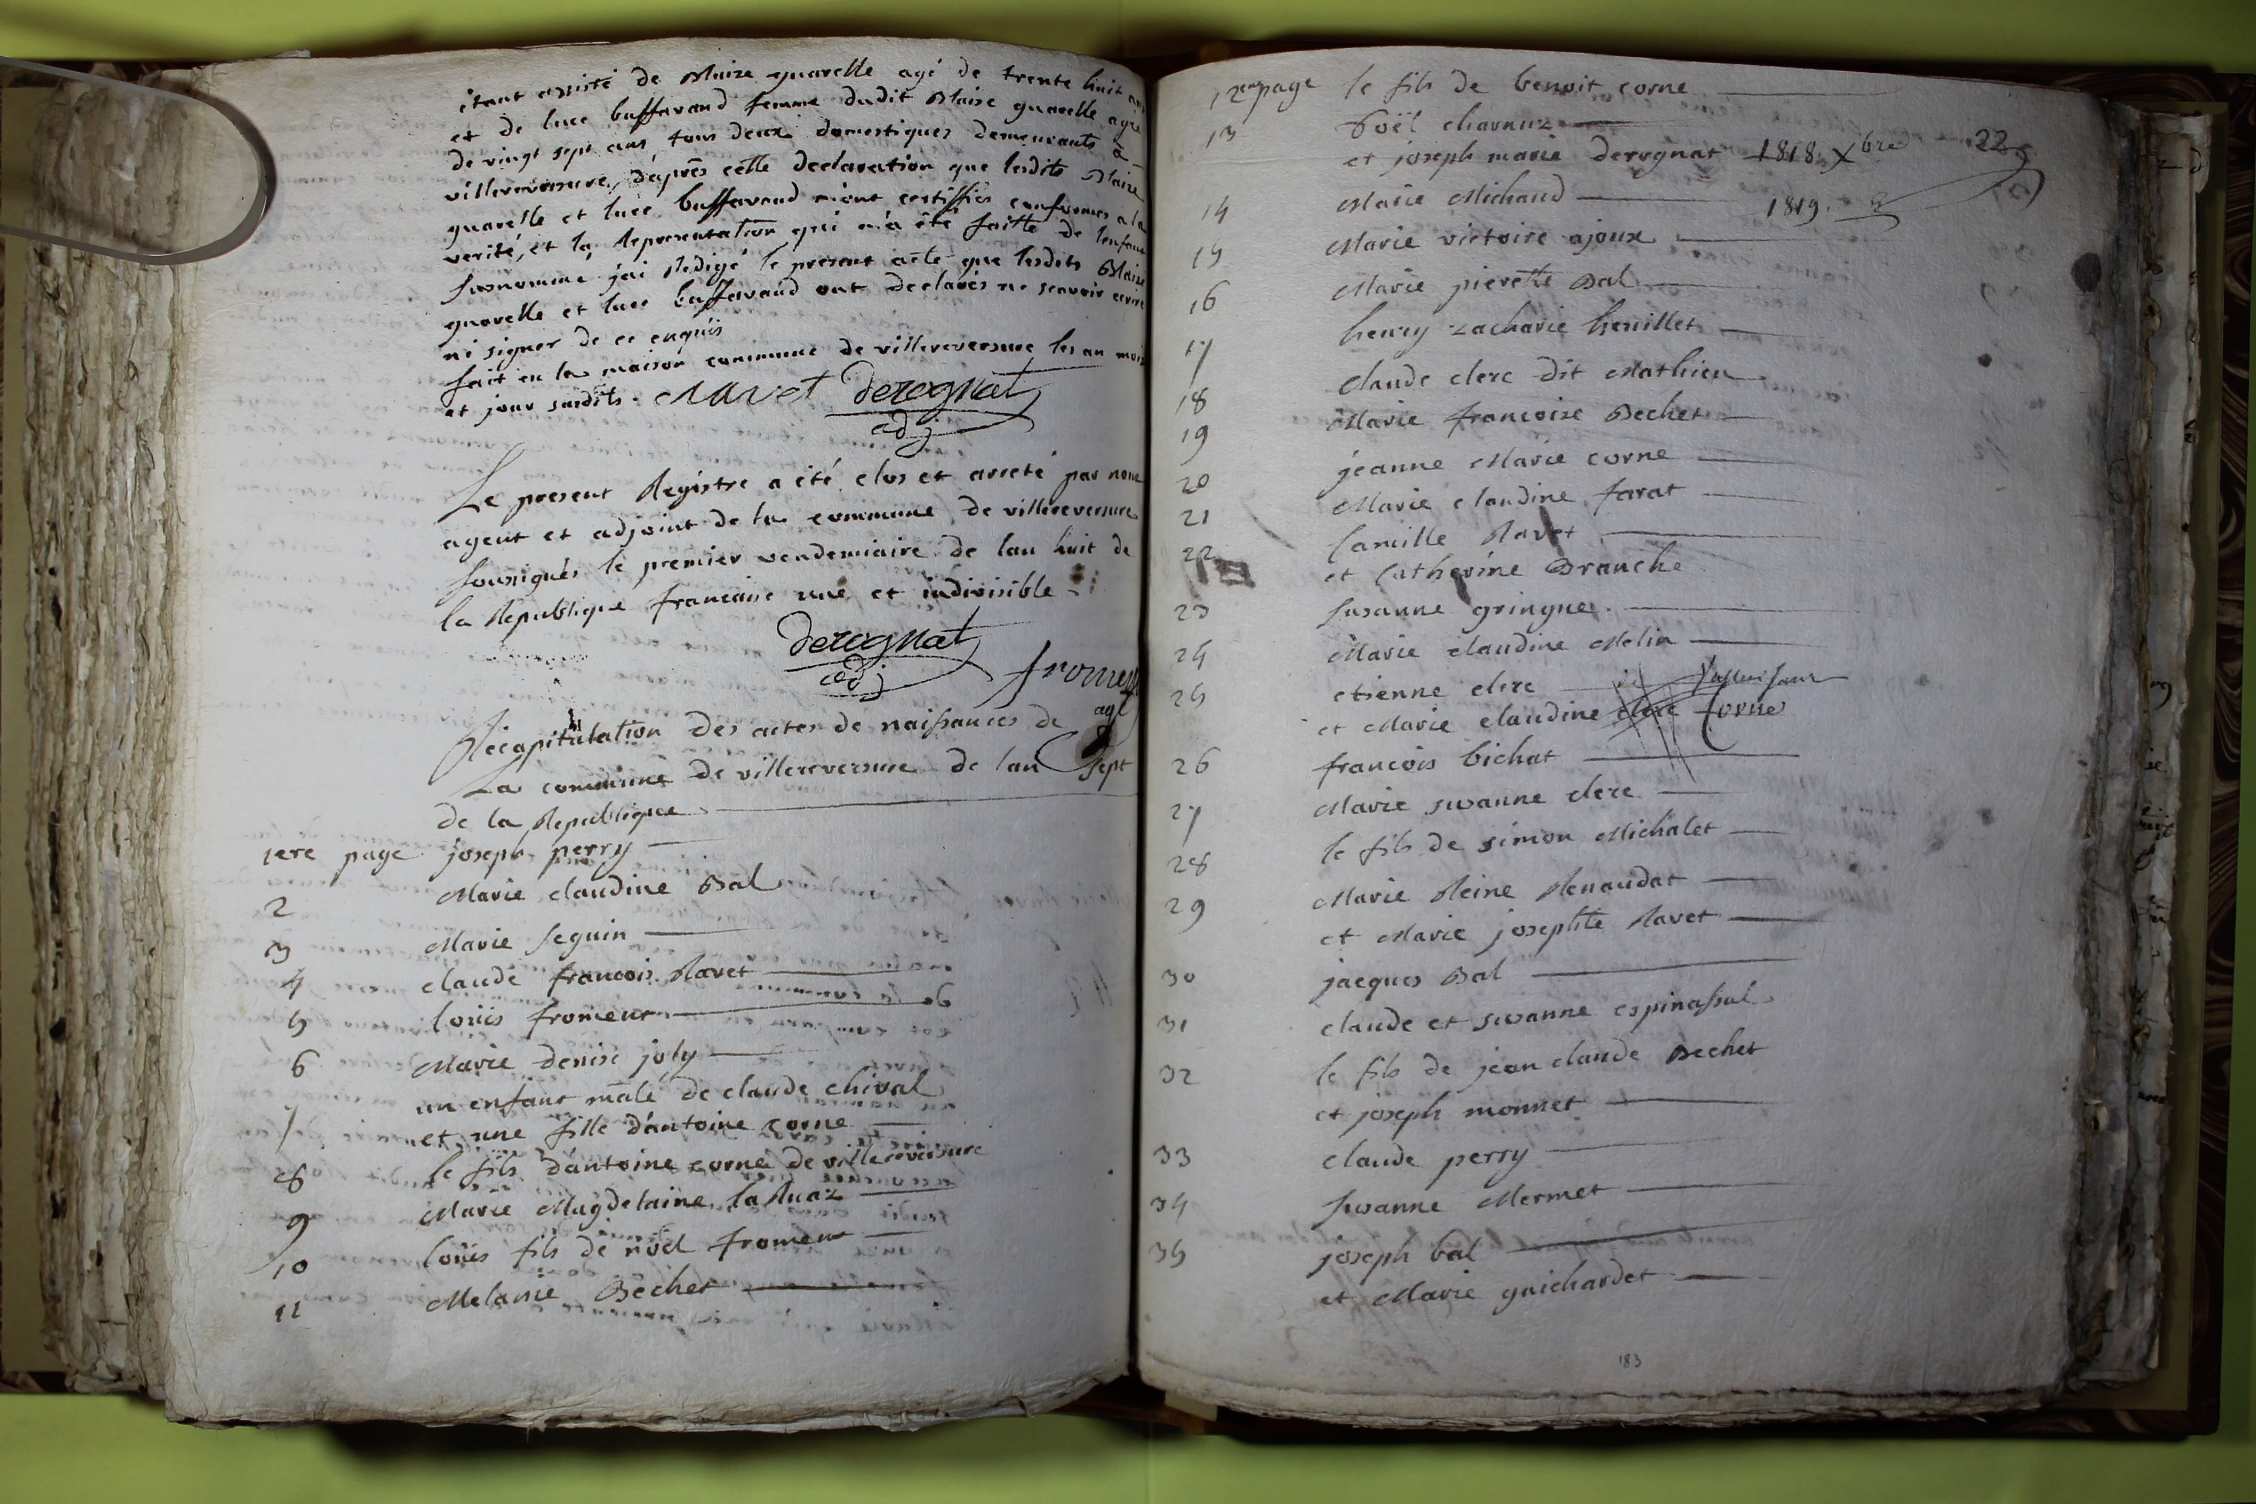 étant assisté de Blaize quarelle agé de trente huit ans
et de luce buffavand femme dudit Blaise quarelle agée
de vingt sept ans, tous deux domestiques demeurants à
villereversure, d'après cette declaration que lesdits Blaize
quarelle et luce buffavand m'ont certiffiés conformes a la
verité, et la Representation qui m'a été faitte de lenfant
susnommé j'ai Redigé le present acte que lesdits Blaize
quarelle et luce buffavand ont declarés ne scavoir ecrire
ni signer de ce enquis
fait en la maison commune de villereversure les an mois
et jour susdits. Ravet deregnat
adj
Le present Registre a été clos et arreté par nous
agent et adjoint de la commune de villereversure
soussignés le premier vendemiaire de lan huit de
la Republique francaise une et indivisible
deregnat
adj froment
agt
Récapitulation des actes de naissances de
La commune de villereversure de lan sept
de la Republique
1ere page joseph perry
2 Marie claudine Bal
3 Marie seguin
4 claude francois Ravet
5 loüis froment
6 Marie denise joly
7 un enfant mâle de claude chival
et une fille d'antoine corne
8 le fils d'antoine corne de villereversure
9 Marie Magdelaine la Ruaz
10 loüis fils de nöel froment
11 Melanie Bechet
12em page le fils de benoit corne
13 Noël charnuz
et joseph marie deregnat 1818 Xbre 22
14 Marie Michaud 1819.
15 Marie victoire ajoux
16 Marie pierette Bal
17 henry zacharie heuillet
18 claude clerc dit Mathieu
19 Marie francoise Bechet
20 jeanne Marie corne
21 Marie claudine farat
22 Camille Ravet
et Catherine Branche
23 susanne gringue
24 Marie claudine Melin
25 etienne clerc
et Marie claudine clerc Corne
26 francois bichat
27 Marie suzanne clerc
28 le fils de simon Michalet
29 Marie Reine Renaudat
et Marie josephte Ravet
30 jacques Bal
31 claude et suzanne espinassal
32 le fils de jean claude Bechet
et joseph monnet
33 claude perry
34 suzanne Mermet
35 joseph bal
et Marie guichardet
183